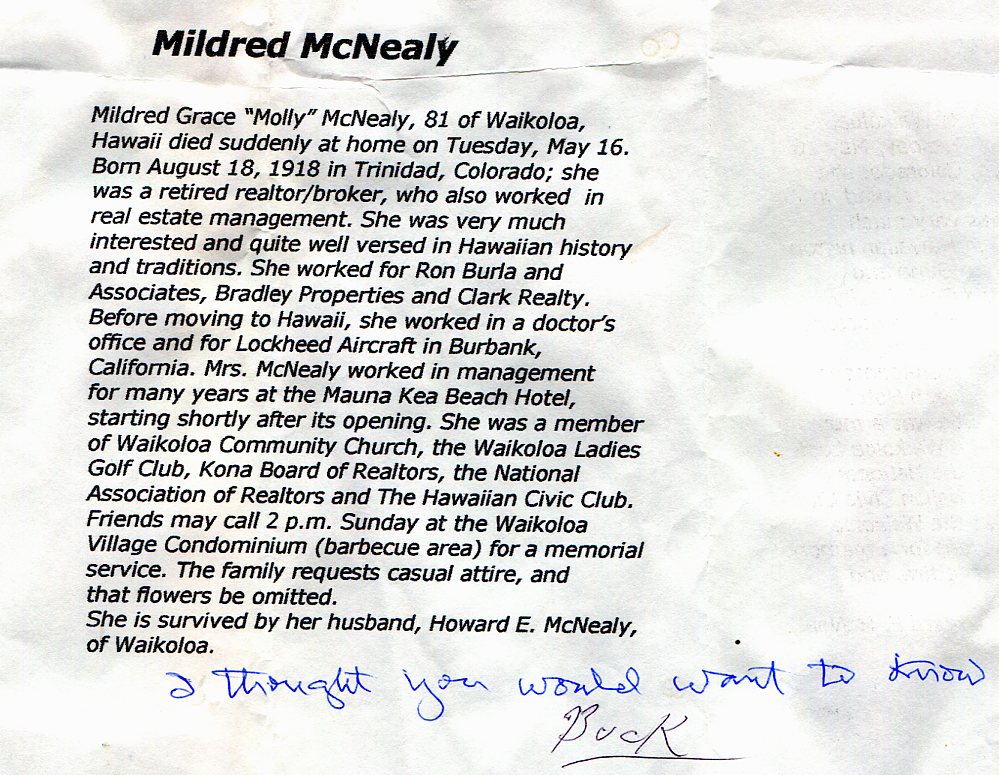 Mildred McNealy
Mildred Grace "Molly" McNealy, 81 of Waikoloa,
Hawaii died suddenly at home on Tuesday, May 16.
Born August 18, 1918 in Trinidad, Colorado; she
was a retired realtor/broker, who also worked in
real estate management. She was very much
interested and quite well versed in Hawaiian history
and traditions. She worked for Ron Burla and
Associates, Bradley Properties and Clark Realty.
Before moving to Hawaii, she worked in a doctor's
office and for Lockheed Aircraft in Burbank,
California. Mrs. McNealy worked in management
for many years at the Mauna Kea Beach Hotel,
starting shortly after its opening. She was a member
of Waikoloa Community Church, the Waikoloa Ladies
Golf Club, Kona Board of Realtors, the National
Association of Realtors and The Hawaiian Civic Club.
Friends may call 2 p.m. Sunday at the Waikoloa
Village Condominium (barbecue area) for a memorial
service. The family requests casual attire, and
that flowers be omitted.
She is survived by her husband, Howard E. McNealy,
of Waikoloa.
I thought you would want to know
Buck